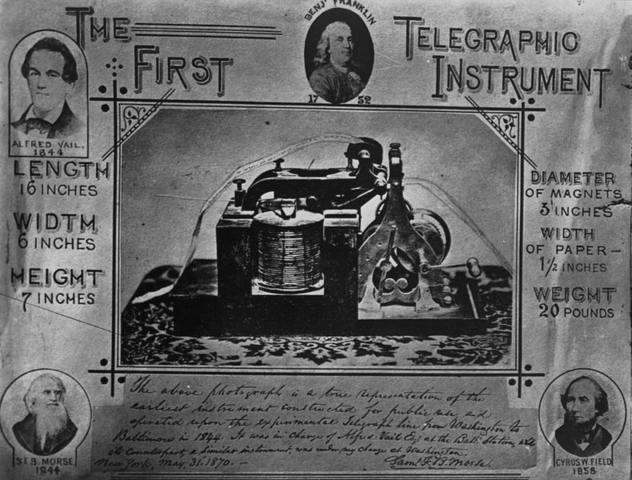 THE FIRST
BENJ. FRANKLIN
1752
TELEGRAPHIC INSTRUMENT
ALFRED VAIL.
1844
LENGTH
16 INCHES
WIDTH
6 INCHES
HEIGHT
7 INCHES
DIAMETER
OF MAGNETS
3 INCHES
WIDTH
OF PAPER—
1½ INCHES
WEIGHT
20 POUNDS
The above photograph is a true representation of the
earliest instrument constructed for public use, and
operated upon the experimental Telegraph line from Washington to
Baltimore in 1844. It was in charge of Alfred Vail Esq. at the Balt. Station, and
its counterpart, a similar instrument, was under my charge at Washington.
New York, May 31. 1870. — Saml. F. B. Morse.
S.F.B. MORSE
1844
CYRUS W. FIELD
1858